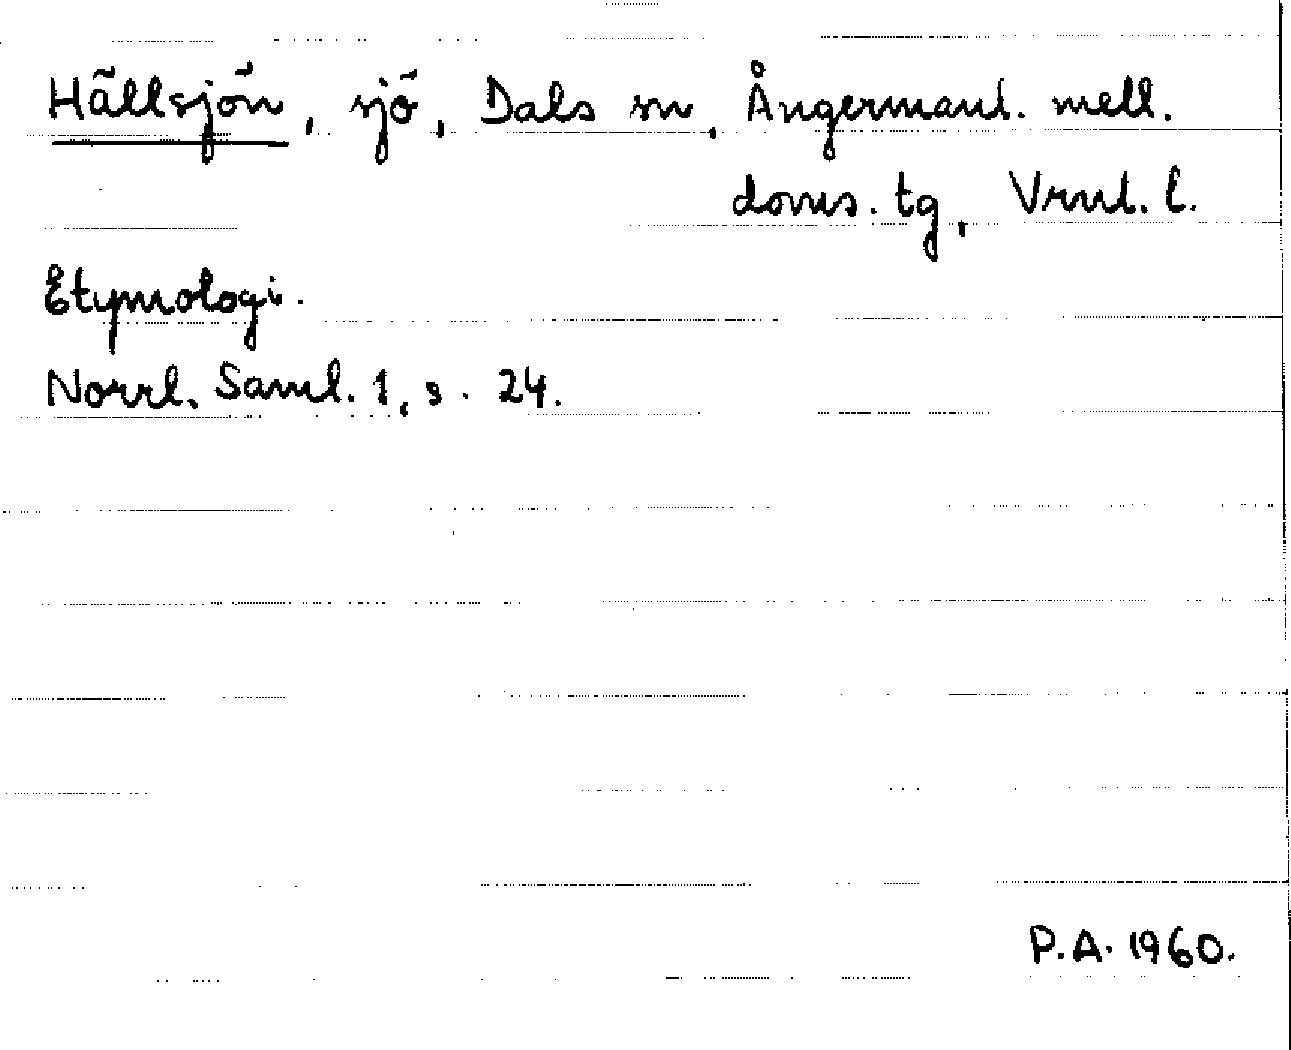 Hällsjön, sjö, Dals sn, Ångermanl. mell.
doms. tg, Vrnl. l.
Etymologi.
Norrl. Saml. 1, s. 24.
P.A. 1960.